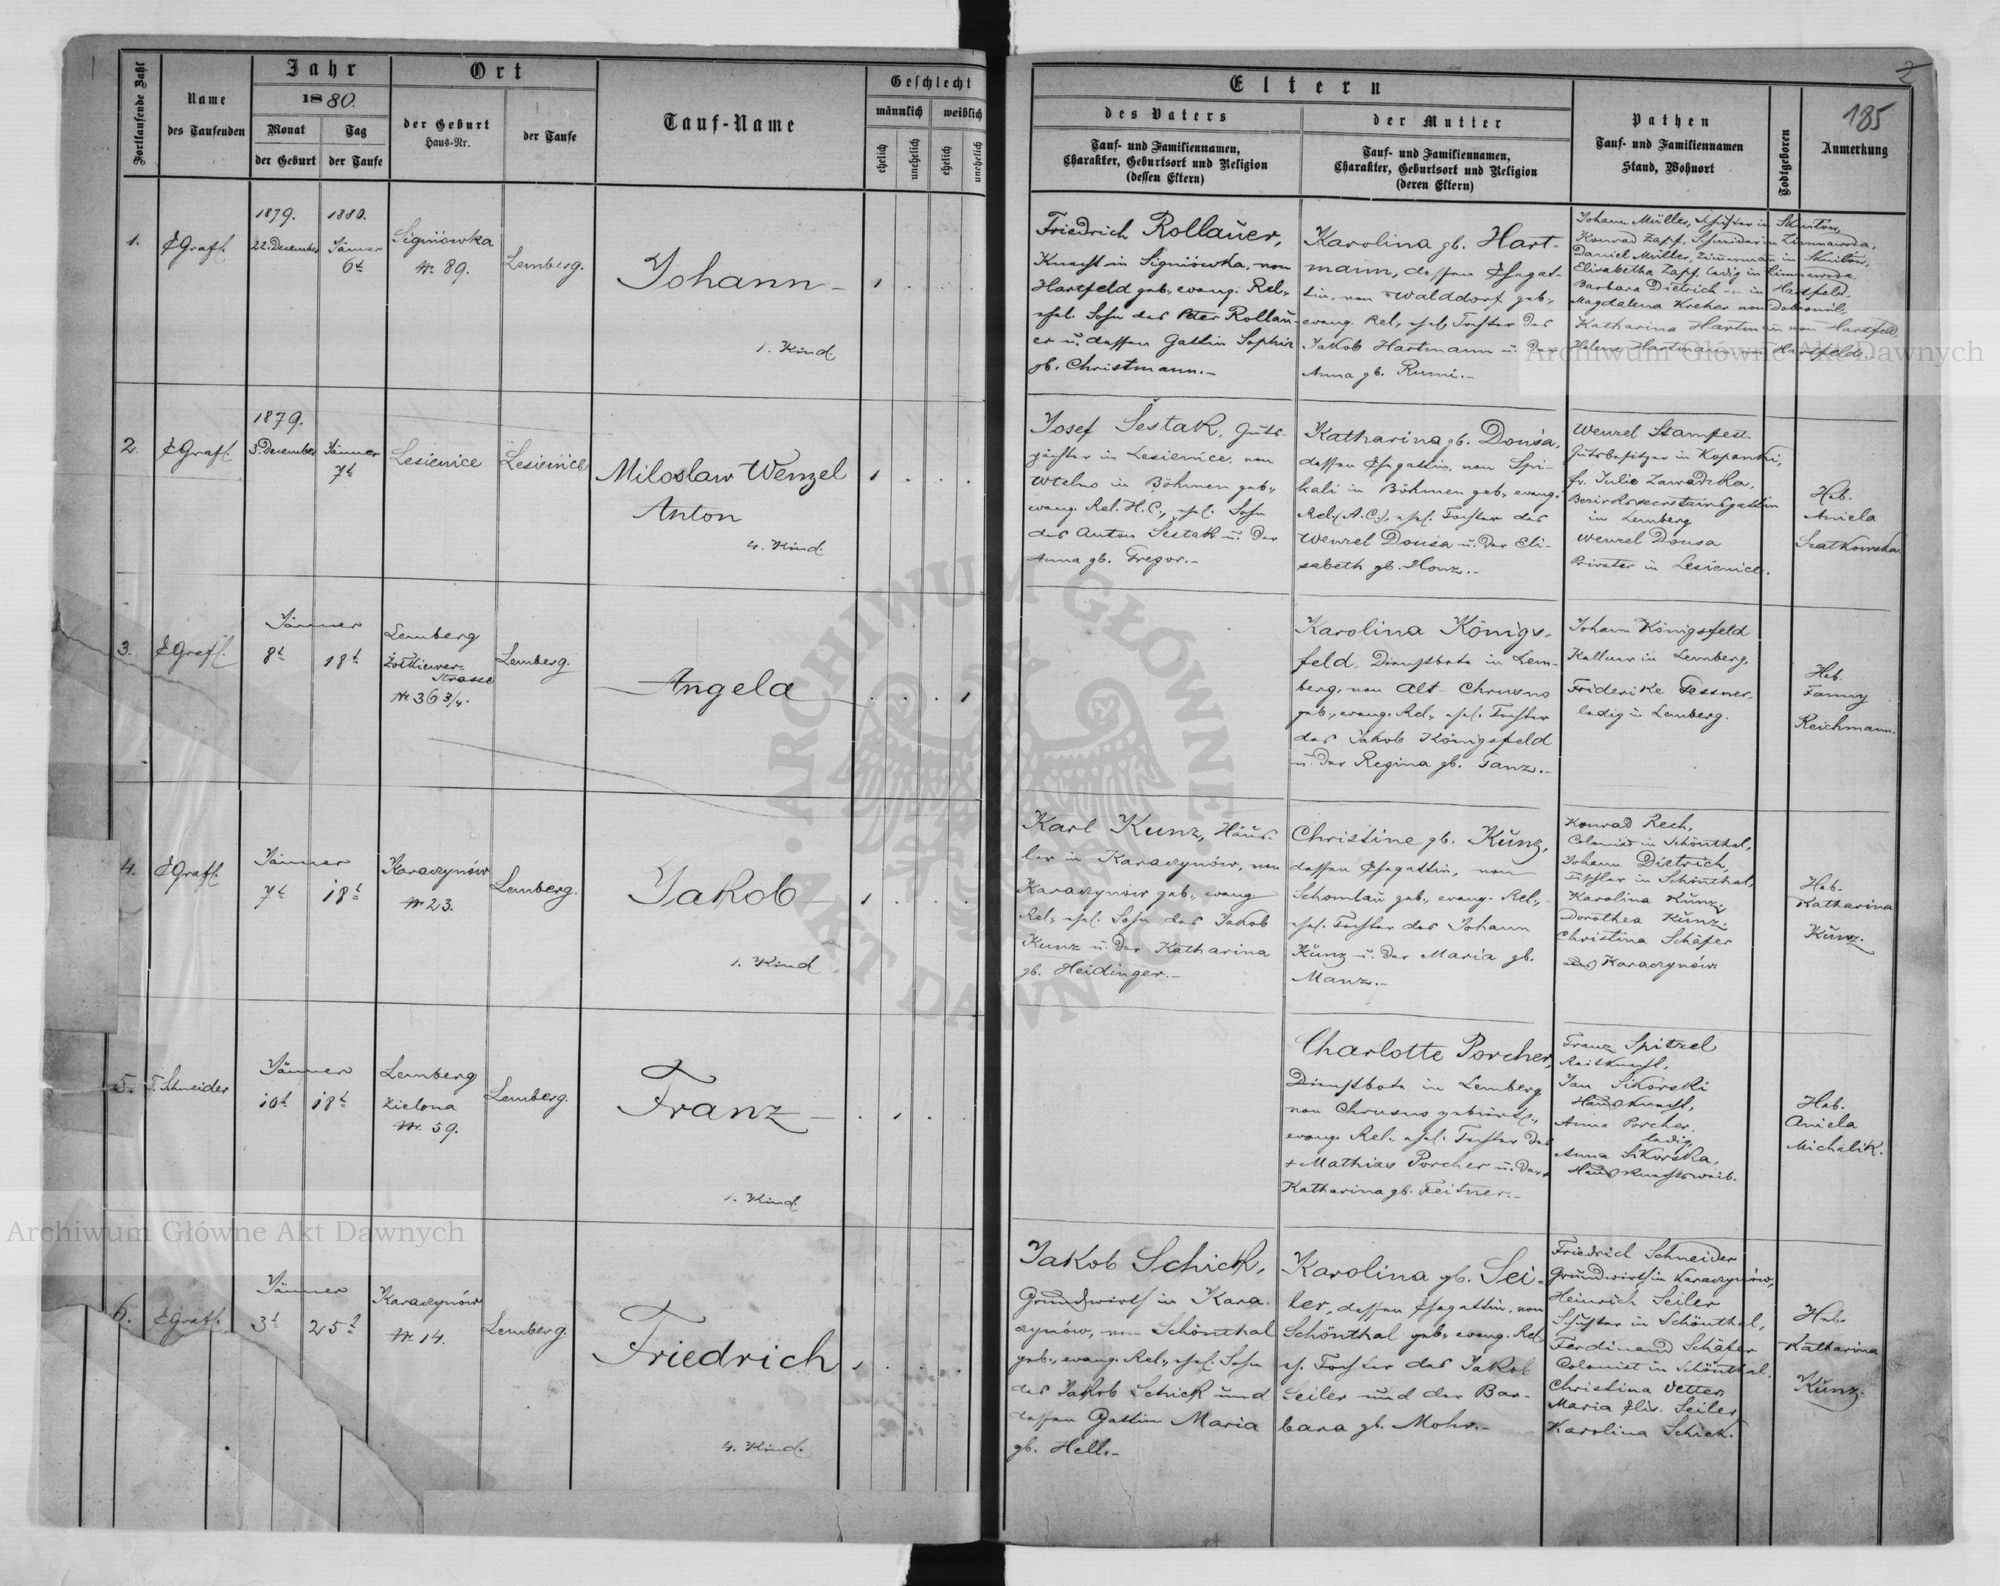 Fortlaufende Zahl
Name
des Taufenden
Jahr
1880.
Monat
der Geburt
Tag
der Taufe
Ort
der Geburt
Haus-Nr.
der Taufe
Tauf-Name
Geschlecht
männlich
weiblich
ehelich
unehelich
ehelich
unehelich
Eltern
des Vaters
Tauf- und Familiennamen,
Charakter, Geburtsort und Religion
(dessen Eltern)
der Mutter
Tauf- und Familiennamen,
Charakter, Geburtsort und Religion
(deren Eltern)
Pathen
Tauf- und Familiennamen
Stand, Wohnort
Todtgeboren
Anmerkung
2
185
1.
EGrafl.
1879.
22. December
1880.
Jänner
6t
Signiówka
Nr 89.
Lemberg.
Johann
1. Kind
Friedrich Rollauer,
Knecht in Signiówka, von
Hartfeld geb., evang. Rel.,
ehel. Sohn des Peter Rollau-
er u. dessen Gattin Sophie
gb. Christmann.-
Karolina gb. Hart-
mann, dessen Ehegat-
tin, von Walddorf geb.,
evang. Rel., ehel. Tochter des
Jakob Hartmann u. der
Anna gb. Rumi.-
Johann Müller, Schuster in Sknilow,
Konrad Zapf, Schneider in Zimnawoda,
Daniel Müller, Zimmermann in Sknilow,
Elisabetha Zapf, ledig in Zimnawoda
Barbara Dietrich in Hartfeld,
Magdalena Kreher von Dobrowil,
Katharina Hartmann von Hartfeld,
Helene Hartmann von Hartfeld.
2.
EGraf.
1879.
3. December
Jänner
7t
Lesienice
Lesienice
Miloslaw Wenzel
Anton
4. Kind.
Josef Šestak, Guts-
pächter in Lesienice, von
Wtelno in Böhmen geb.,
evang. Rel. H.C., ehel. Sohn
des Anton Šestak u. der
Anna gb. Gregor.-
Katharina gb. Douša,
dessen Ehegattin, von Spi-
kali in Böhmen geb., evang.
Rel. A.C., ehel. Tochter des
Wenzel Dousa u. der Eli-
sabeth gb. Honz.-
Wenzel
Gutsbesitzer in Kopanki,
fr. Julie Zawadzka,
Bezirkssecretärsgattin
in Lemberg
Wenzel Dousa
Privater in Lesienice.
Heb.
Aniela
Szatkowska
3.
EGraf.
Jänner
8t
18t
Lemberg
Żołkiewer-
strasse
Nr 36 3/4.
Lemberg.
Angela
Karolina Königs-
feld, Dienstbote in Lem-
berg, von Alt- Chrusno
geb., evang. Rel., ehel. Tochter
des Jakob Königsfeld
u. der Regina gb. Tanz.-
Johann Königsfeld
Kellner in Lemberg,
Friderike Gessner,
ledig in Lemberg.
Heb.
Fanny
Reichmann.
4.
EGraf.
Jänner
7t
18t
Karaczynów
Nr 23.
Lemberg.
Jakob
1. Kind
Karl Kunz, Häus-
ler in Karaczynów, von
Karaczynów geb., evang
Rel., ehel. Sohn des Jakob
Kunz u. der Katharina
gb. Heidinger.-
Christine gb. Kunz,
dessen Ehegattin, von
Schomlau geb., evang. Rel.,
ehel. Tochter des Johann
Kunz u. der Maria gb.
Manz.-
Konrad Rech,
Colonist in Schönthal,
Johann Dietrich,
Tischler in Schönthal,
Karolina Kunz,
Dorothea Kunz,
Christina Schäfer
aus Karaczynów
Heb.
Katharina
Kunz.
5.
T. Schneider
Jänner
10t
18t
Lemberg
Zielona
Nr. 59.
Lemberg.
Franz
1. Kind.
Charlotte Porcher,
Dienstbote in Lemberg
von Chrusno gebürt.,
evang. Rel. ehel. Tochter des
+ Mathias Porcher u. der
Katharina gb. Feitner.-
Franz Spitzel
Reitknecht,
Jan Sikorski
Hausknecht,
Anna Porcher,
ledig,
Anna Sikorska,
Hausknechtsweib.
Heb.
Aniela
Michalik.
6.
EGraf.
Jänner
3t
25t
Karaczynów
Nr 14.
Lemberg.
Friedrich
4. Kind.
Jakob Schick,
Grundwirth in Kara-
czynów, von Schönthal
geb., evang. Rel., ehel. Sohn
des Jakob Schick und
dessen Gattin Maria
gb. Hell.-
Karolina gb. Sei-
ler, dessen Ehegattin, von
Schönthal geb., evang. Rel.,
eh. Tochter des Jakob
Seiler und der Bar-
bara gb. Mohr.-
Friedrich Schneider
Grundwirth in Karaczynów,
Heinrich Seiler
Schuster in Schönthal,
Ferdinand Schäfer
Colonist in Schönthal,
Christina Vetter,
Maria Elis. Seiler,
Karolina Schick.
Heb.
Katharina
Kunz.
Archiwum Główne Akt Dawnych
Archiwum Główne Akt Dawnych
ARCHIWUM GŁÓWNE
AKT DAWNYCH